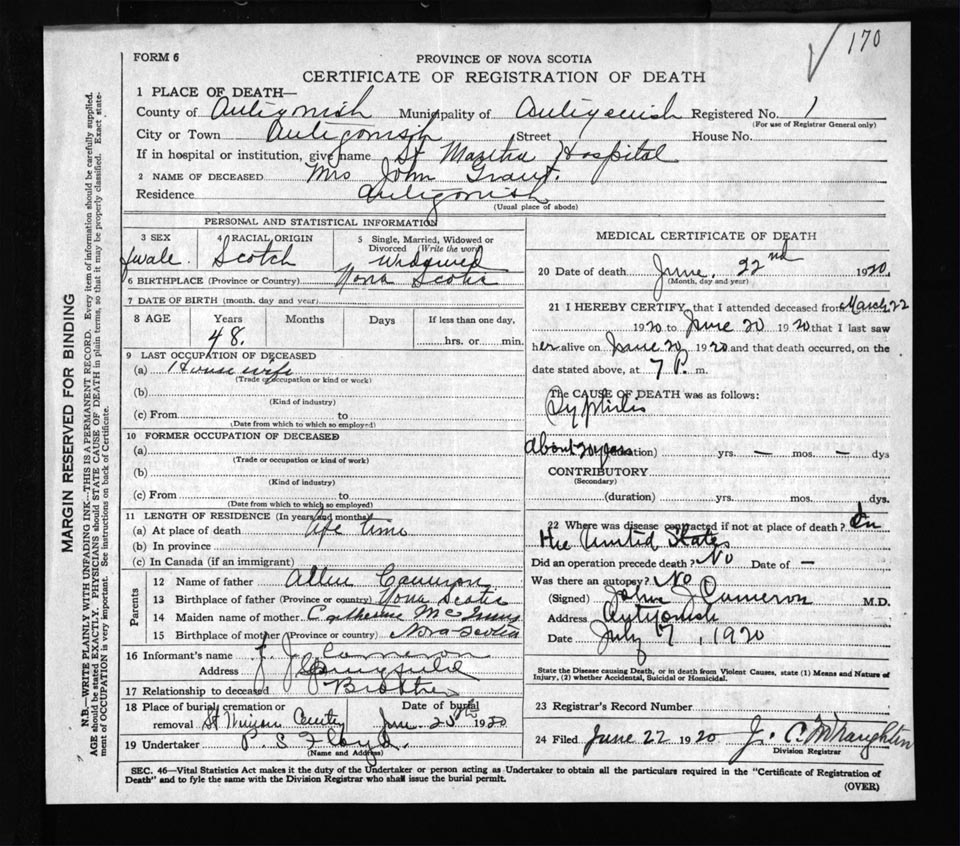 170
FORM 6
PROVINCE OF NOVA SCOTIA
CERTIFICATE OF REGISTRATION OF DEATH
1 PLACE OF DEATH—
County of Antigonish Municipality of Antigonish Registered No. 1
(For use of Registrar General only)
City or Town Antigonish Street House No.
If in hospital or institution, give name St Martha Hospital
2 NAME OF DECEASED Mrs John Grant.
Residence Antigonish
(Usual place of abode)
PERSONAL AND STATISTICAL INFORMATION
3 SEX 4 RACIAL ORIGIN 5 Single, Married, Widowed or
Divorced (Write the word)
Scotch Widowed
6 BIRTHPLACE (Province or Country) Nova Scotia
7 DATE OF BIRTH (month, day and year)
8 AGE Years Months Days If less than one day,
48. hrs. or min.
9 LAST OCCUPATION OF DECEASED
(a) House wife
(Trade or occupation or kind or work)
(b)
(Kind of industry)
(c) From to
(Date from which to which so employed)
10 FORMER OCCUPATION OF DECEASED
(a)
(Trade or occupation or kind or work)
(b)
(Kind of industry)
(c) From to
(Date from which to which so employed)
11 LENGTH OF RESIDENCE (In years and months)
(a) At place of death life time
(b) In province
(c) In Canada (if an immigrant)
Parents
12 Name of father Allen Cameron
13 Birthplace of father (Province or country) Nova Scotia
14 Maiden name of mother Catherine
15 Birthplace of mother (Province or country) Nova-Scotia
16 Informant's name J. J. Cameron
Address
17 Relationship to deceased Brother
18 Place of burial, cremation or Date of burial
removal St 1920
19 Undertaker P. S Floyd.
(Name and Address)
MEDICAL CERTIFICATE OF DEATH
20 Date of death June. 22nd 1920.
(Month, day and year)
21 I HEREBY CERTIFY, that I attended deceased from March 22
1920 to June 20 1920 that I last saw
her alive on June 20, 1920 and that death occurred, on the
date stated above, at 7 P. m.
The CAUSE OF DEATH was as follows:
Syphilis
About 20 years (duration) yrs. — mos. — dys
CONTRIBUTORY
(Secondary)
(duration) yrs. mos. dys.
22 Where was disease contracted if not at place of death? In
the United States
Did an operation precede death? No Date of —
Was there an autopsy? No
(Signed) John J Cameron M.D.
Address Antigonish
Date July 7, 1920
State the Disease causing Death, or in death from Violent Causes, state (1) Means and Nature of
Injury, (2) whether Accidental, Suicidal or Homicidal.
23 Registrar's Record Number
24 Filed June 22 1920 J. C.
Division Registrar
SEC. 46—Vital Statistics Act makes it the duty of the Undertaker or person acting as Undertaker to obtain all the particulars required in the "Certificate of Registration of
Death" and to fyle the same with the Division Registrar who shall issue the burial permit.
(OVER)
MARGIN RESERVED FOR BINDING
N.B.—WRITE PLAINLY WITH UNFADING INK—THIS IS A PERMANENT RECORD. Every item of information should be carefully supplied.
AGE should be stated EXACTLY. PHYSICIANS should STATE CAUSE OF DEATH in plain terms, so that it may be properly classified. Exact state-
ment of OCCUPATION is very important. See instructions on back of Certificate.